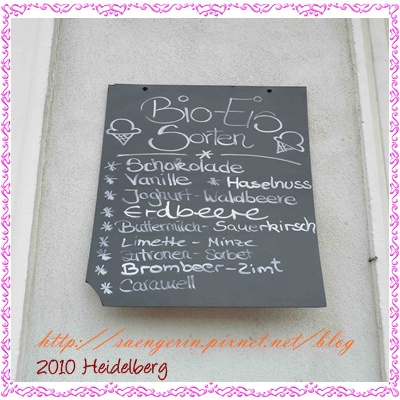 Bio-Eis
Sorten
* Schokolade
* Vanille * Haselnuss
* Joghurt-Waldbeere
* Erdbeere
* Buttermilch-Sauerkirsch
* Limette-Minze
* Zitronen-Sorbet
* Brombeer-Zimt
* Caramell
http://saengerin.pixnet.net/blog
2010 Heidelberg